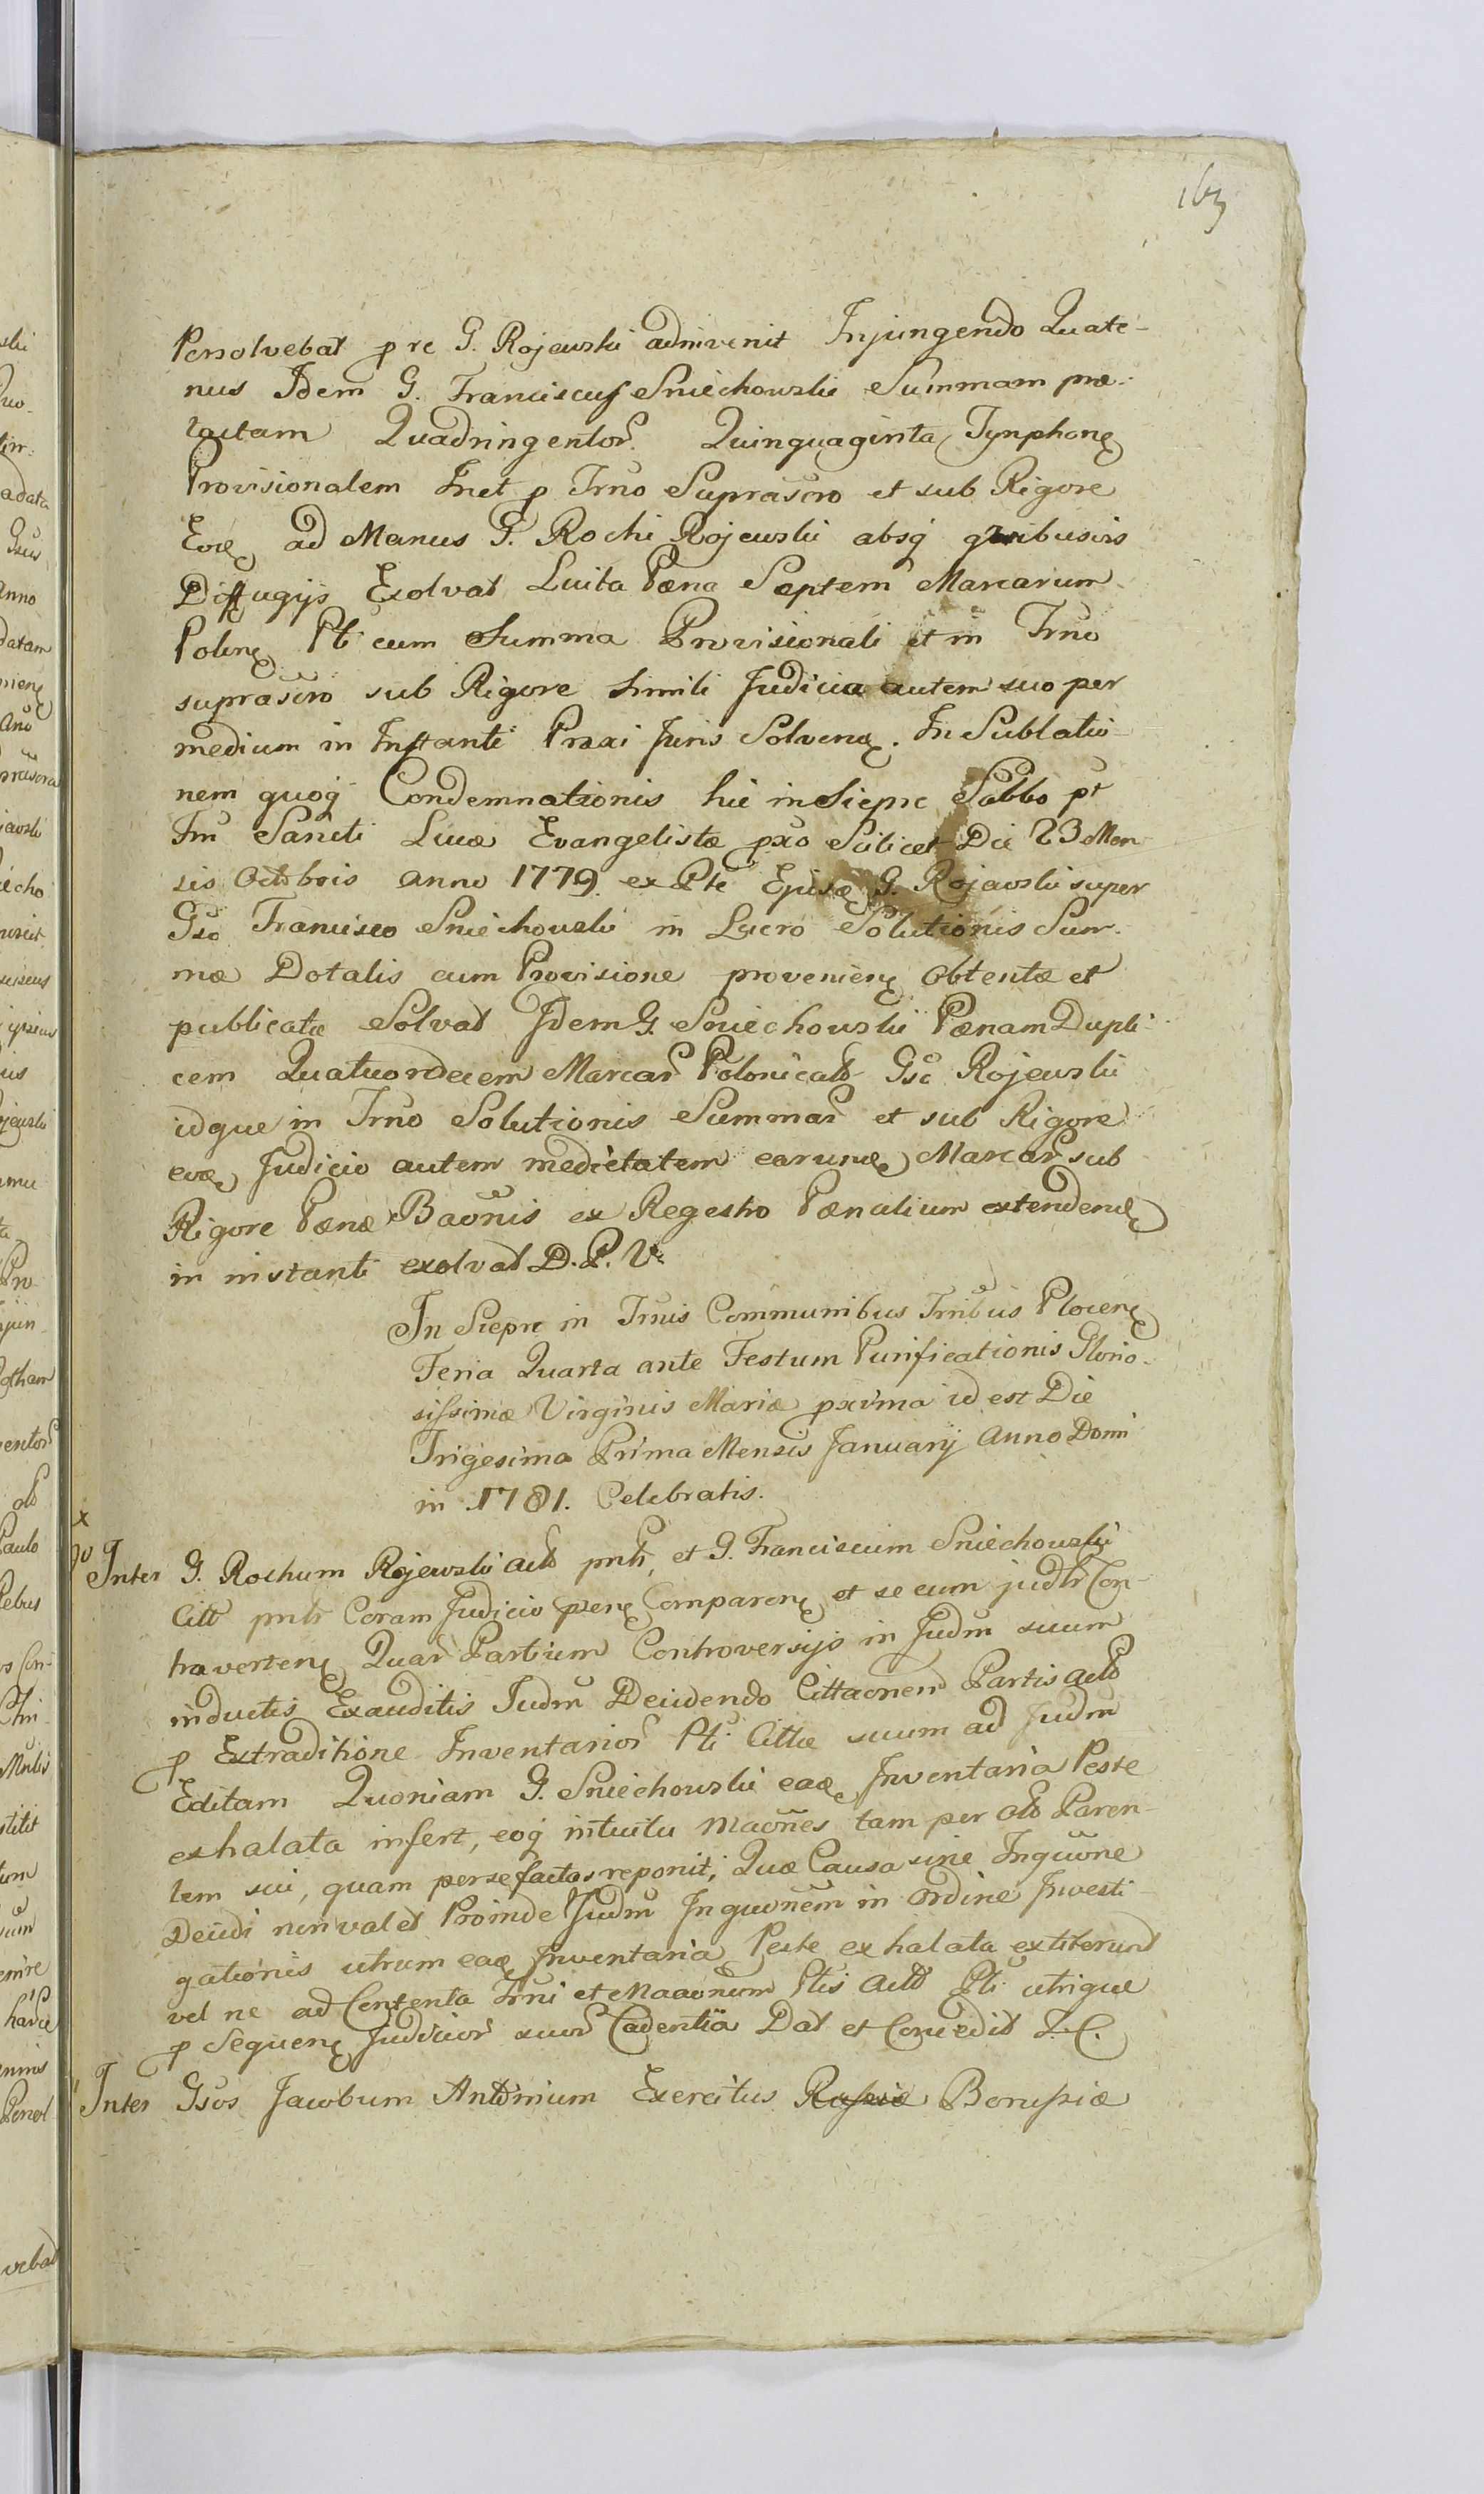 163
Persolvebat p re G. Rojewski adinvenit Injungendo Quate-
nus Idem G. Franciscus Sniechowski Summam præ-
Quadringentor Quinquaginta Tynphonę
Provisionalem p Trno Suprascro et sub Rigore
ad Manus G. Rochi Rojewski absq quibusvis
Diffugijs Exolvat Luita Pæna Septem Marcarum
Polonę cum Summa Provisionali et in Trno
suprascro sub Rigore Simili Judicio autem suo per
medium in Instanti Praxi Juris Solvenę. In Sublatio-
nem quoq Condemnationis hic in Siepre Sabbo pt
Sancti Lucæ Evangelistæ pxo Scilicet Die 23 Men-
sis Octobris anno 1779. ex Pte G. Rojewski super
Gso Francisco Sniechowski in Lucro Solutionis Sum-
mæ Dotalis cum Provisione provenienę Obtentæ et
publicatæ Solvat Idem G. Sniechowski Pænam Dupli-
cem Quatuordecem Marcar Polonicalb Gso Rojewski
idque in Trno Solutionis Summar et sub Rigore
Judicio autem medietatem earundę Marcar sub
Rigore Pænæ Baonis ex Regestro Pænalium extendendę
in instanti exolvat D. P. V.
In Siepre in Trnis Communibus Trribus Plocenę
Feria Quarta ante Festum Purificationis Glorio-
sissimæ Virginis Mariæ pxima id est Die
Trigesima Prima Mensis Januarij Anno Domi
in 1781. Celebratis.
Inter G. Rochum Rojewski actb pntb, et G. Franciscum Sniechowski
Citt pntb Coram Judicio Comparenę et se cum judtr Con-
travertenę Quar Partium Controversijs in Judm suum
inductis Exauditis Judm Decidendo Cittaonem Partis actb
p Extraditione Inventarior Pti Cittæ suum ad Judm
Editam Quoniam G. Sniechowski eadę Inventaria Peste
exhalata infert, eoq intuitu Maones tam per olb Paren-
tem sui, quam per se factas reponit, Quæ Causa sine Inquone
Decidi non valet Proinde Judm Inquonem in Ordine Investi-
gationis utrum eadę Inventaria Peste exhalata extiterunt
vel ne ad Contenta Trni et Maaonum Ptis Actb Pti utrique
p Sequenę Judicior suor Cadentia Dat et Concedit L. C.
Inter Gsos Jacobum Antonium Exercitus Borussiæ